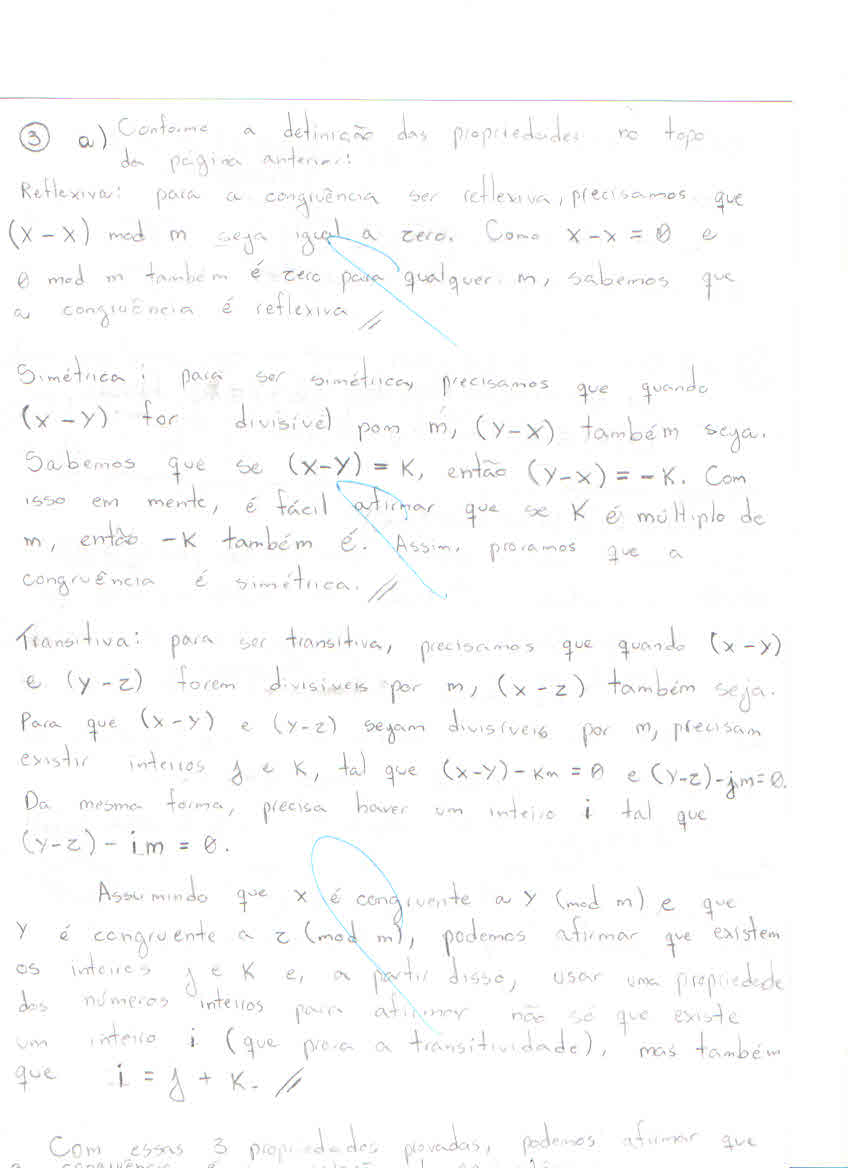 ③ a) Conforme a definição das propriedades no topo
da página anterior:
Reflexiva: para a congruência ser reflexiva, precisamos que
(x - x) mod m seja igual a zero. Como x - x = 0 e
0 mod m também é zero para qualquer m, sabemos que
a congruência é reflexiva //
Simétrica: para ser simétrica, precisamos que quando
(x - y) for divisível por m, (y - x) também seja.
Sabemos que se (x-y) = K, então (y-x) = -K. Com
isso em mente, é fácil afirmar que se K é múltiplo de
m, então -K também é. Assim, provamos que a
congruência é simétrica. //
Transitiva: para ser transitiva, precisamos que quando (x - y)
e (y - z) forem divisíveis por m, (x - z) também seja.
Para que (x - y) e (y - z) sejam divisíveis por m, precisam
existir inteiros j e K, tal que (x-y) - Km = 0 e (y-z) - jm = 0.
Da mesma forma, precisa haver um inteiro i tal que
(y-z) - im = 0.
Assumindo que x é congruente a y (mod m) e que
y é congruente a z (mod m), podemos afirmar que existem
os inteiros j e K e, a partir disso, usar uma propriedade
dos números inteiros para afirmar não só que existe
um inteiro i (que prova a transitividade), mas também
que i = j + K. //
Com essas 3 propriedades provadas, podemos afirmar que
a congruência é